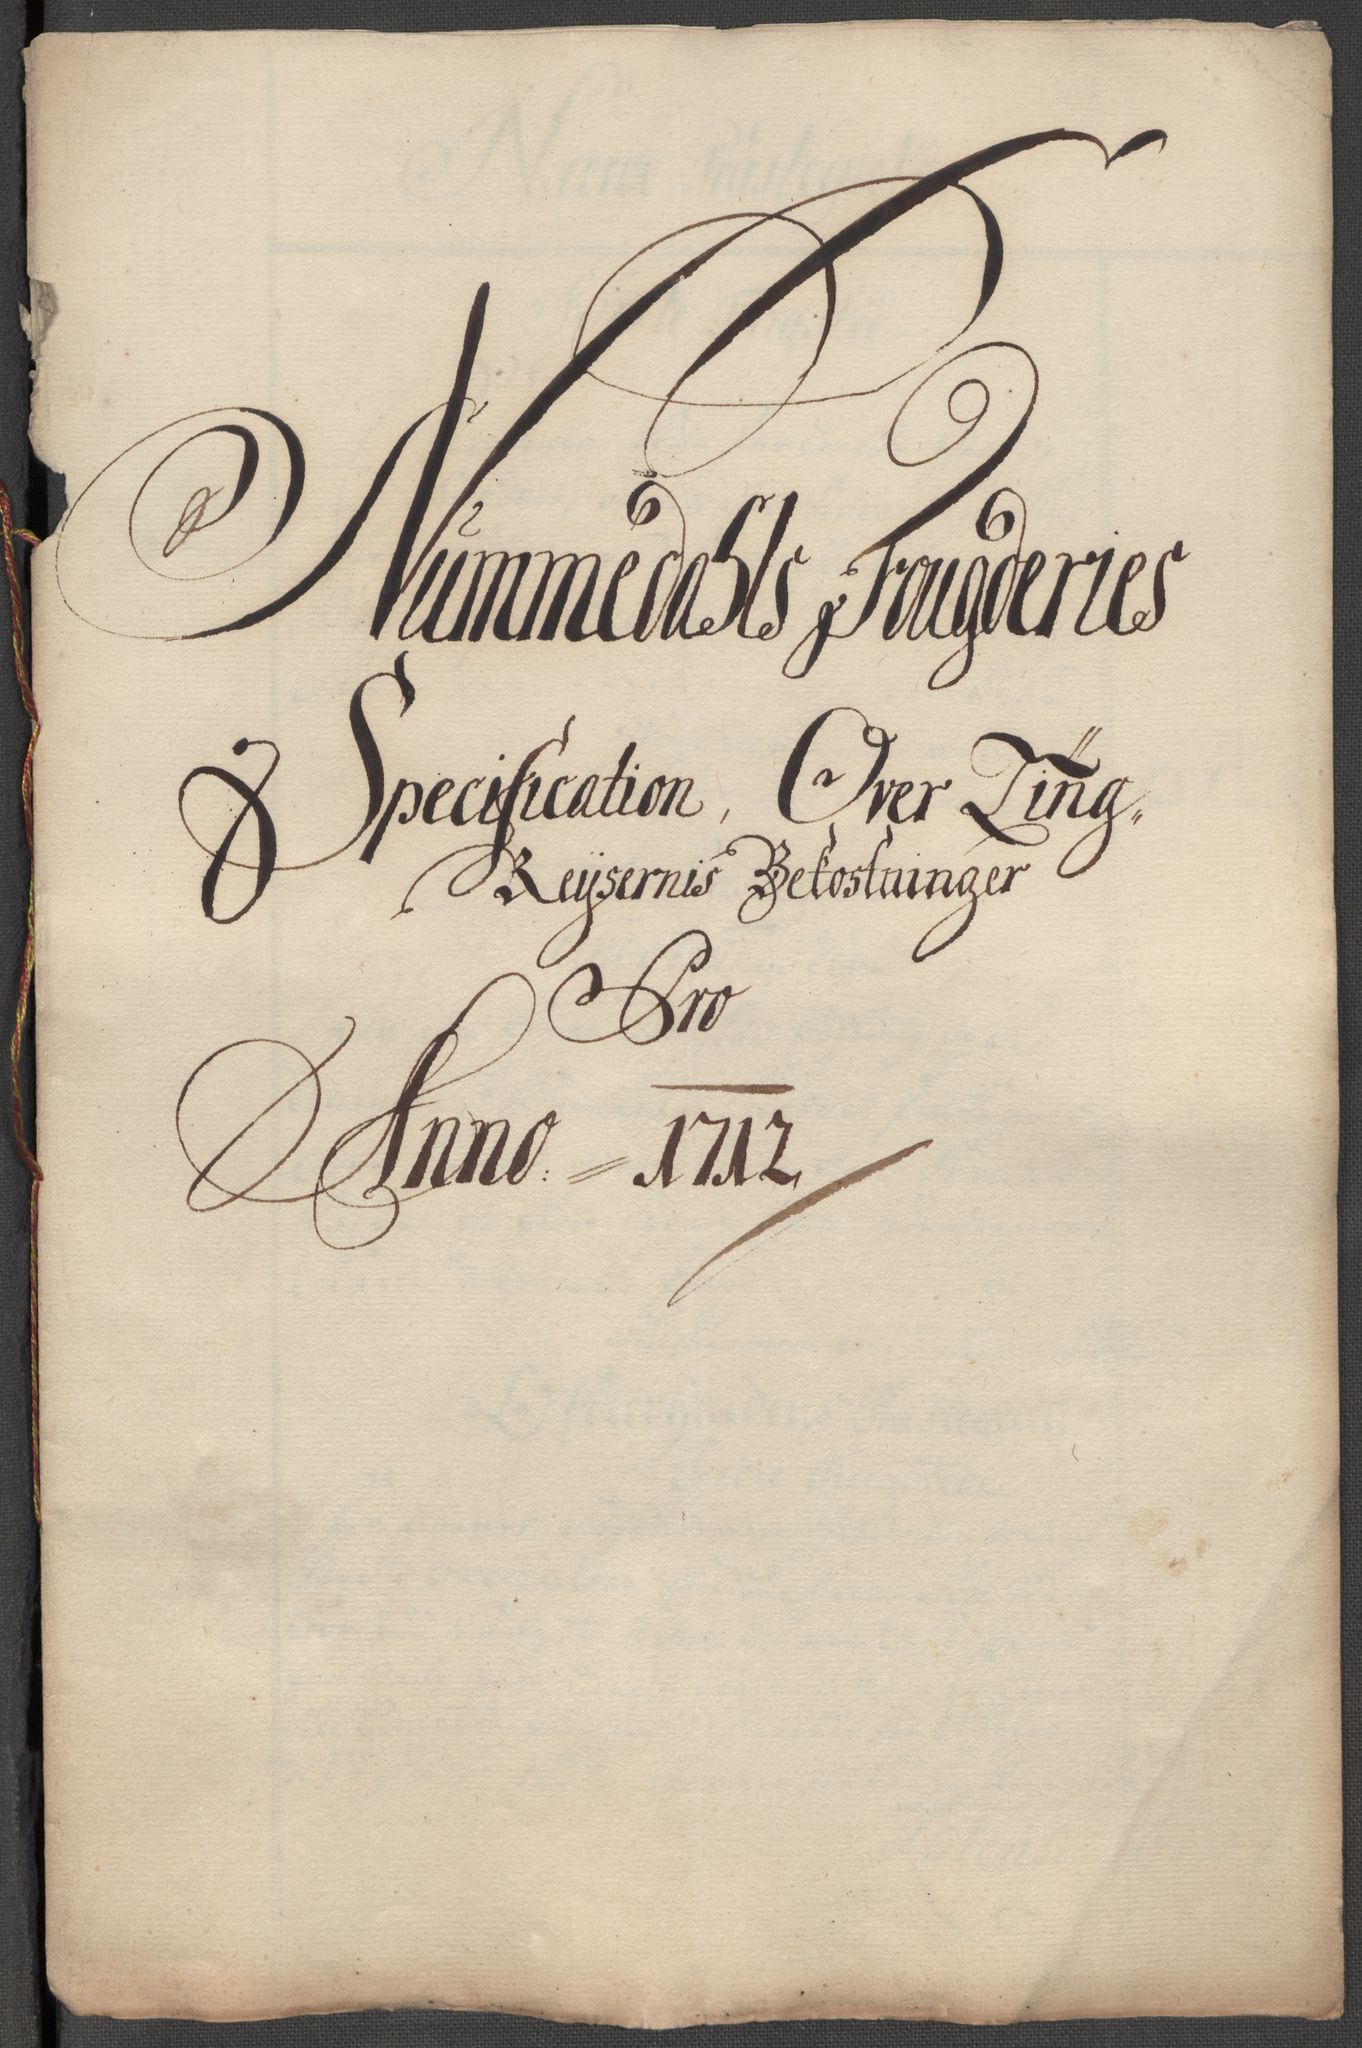 Nummedahls Fougderies
Specification, Over Ting-
Reysernis Bekostninger
Pro
Anno. = 1712